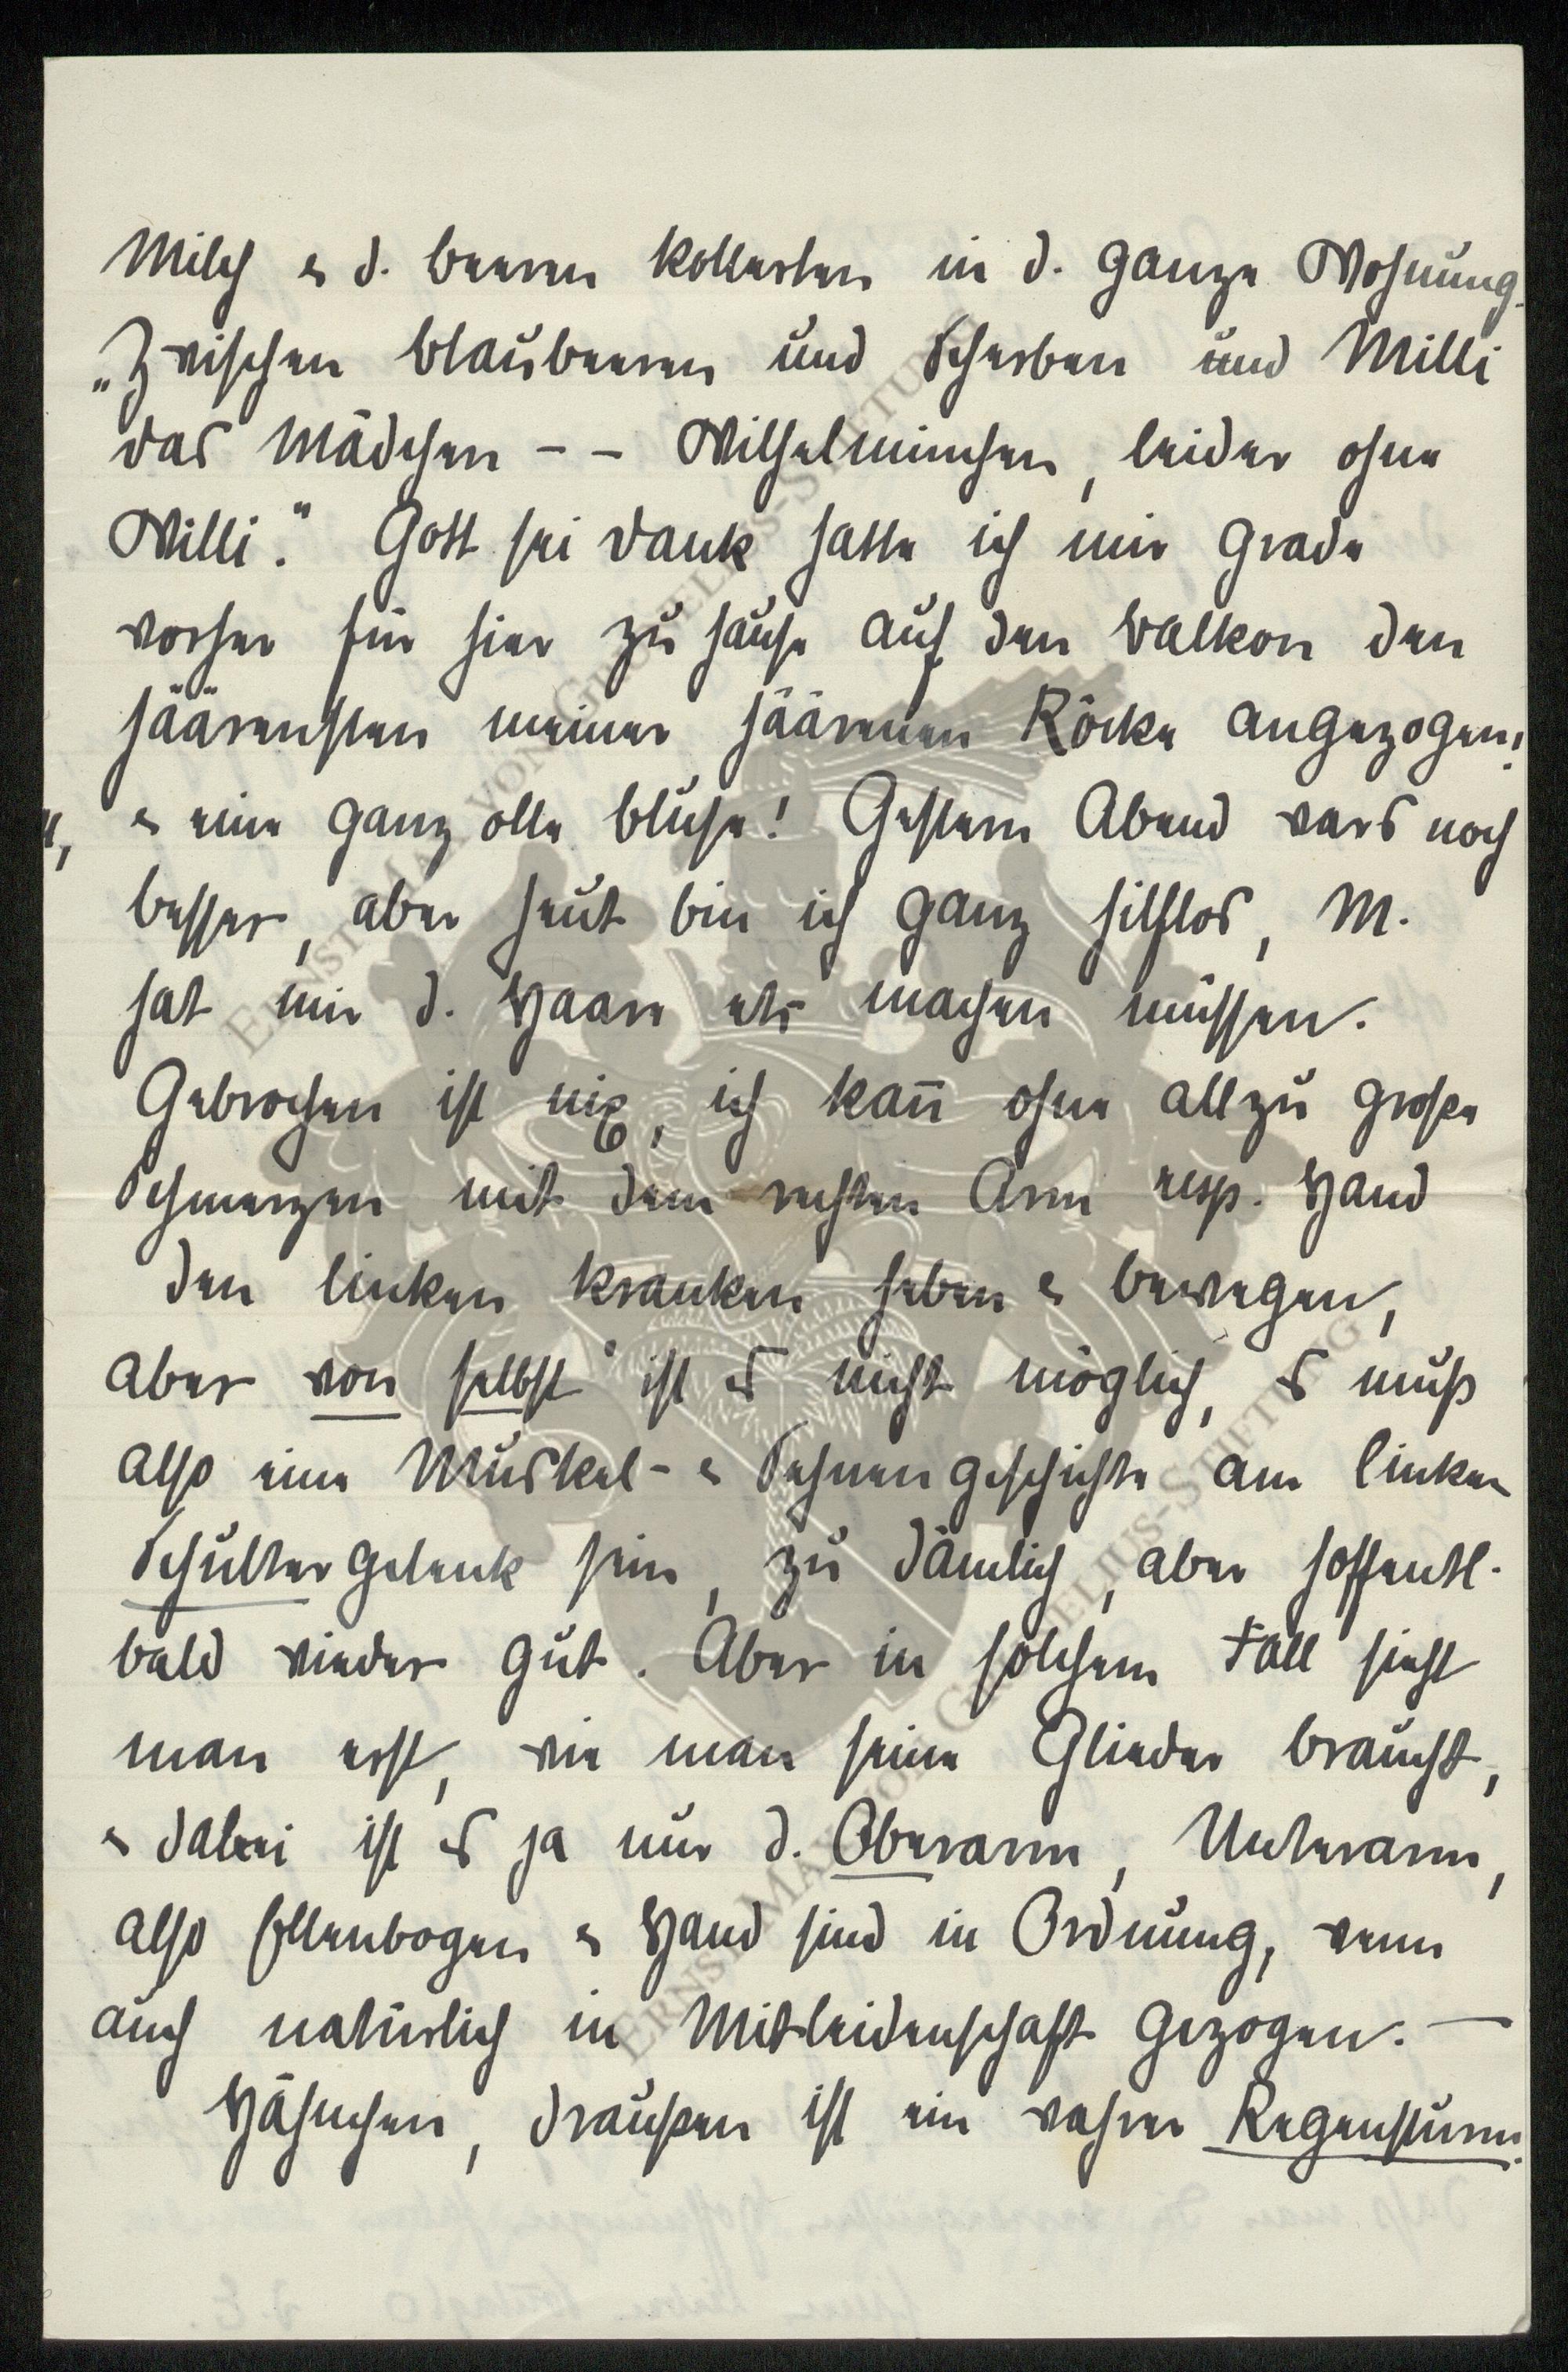 Milch & d. Beeren kollerten in d. ganze Wohnung.
„Zwischen Blaubeeren und Scherben und Milli
das Mädchen -- Wilhelminchen, leider ohne
Willi." Gott sei Dank hatte ich mir grade
vorher für hier zu Hause auf den Balkon den
häärensten meiner häärenen Röcke angezogen,
& eine ganz olle Bluse! Gestern Abend wars noch
besser, aber heut bin ich ganz hilflos, M.
hat mir d. Haare etc machen müssen.
Gebrochen ist nix, ich kann̄ ohne allzu große
Schmerzen mit dem rechten Arm resp. Hand
den linken kranken heben & bewegen,
aber von selbst ist es nicht möglich, es muß
also eine Muskel- & Sehnengeschichte am linken
Schultergelenk sein, zu dämlich, aber hoffentl.
bald wieder gut. Aber in solchem Fall sieht
man erst, wie man seine Glieder braucht,
& dabei ist es ja nur d. Oberarm, Unterarm,
also Ellenbogen & Hand sind in Ordnung, wenn
auch natürlich in Mitleidenschaft gezogen. —
Hähnchen, draußen ist ein wahrer Regensturm.
ERNST-MAX-VON-GRUNELIUS-STIFTUNG
ERNST-MAX-VON-GRUNELIUS-STIFTUNG